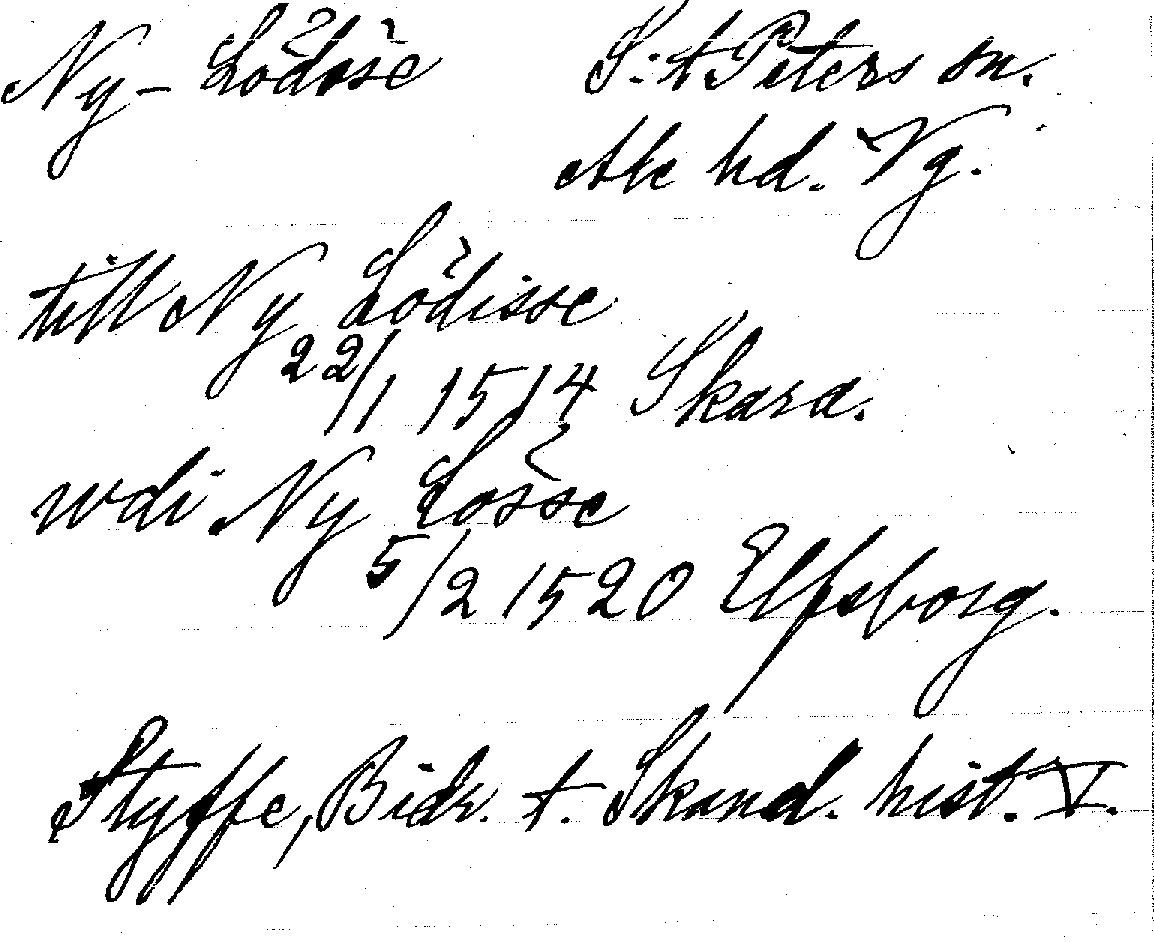 Ny-Lödöse S:t Peters sn.
Ale hd. Vg.
till Ny Lödisse
22/1 1514 Skara.
wdi Ny Lösse
5/2 1520 Elfsborg.
Styffe, Bidr. t. Skand. hist. V.